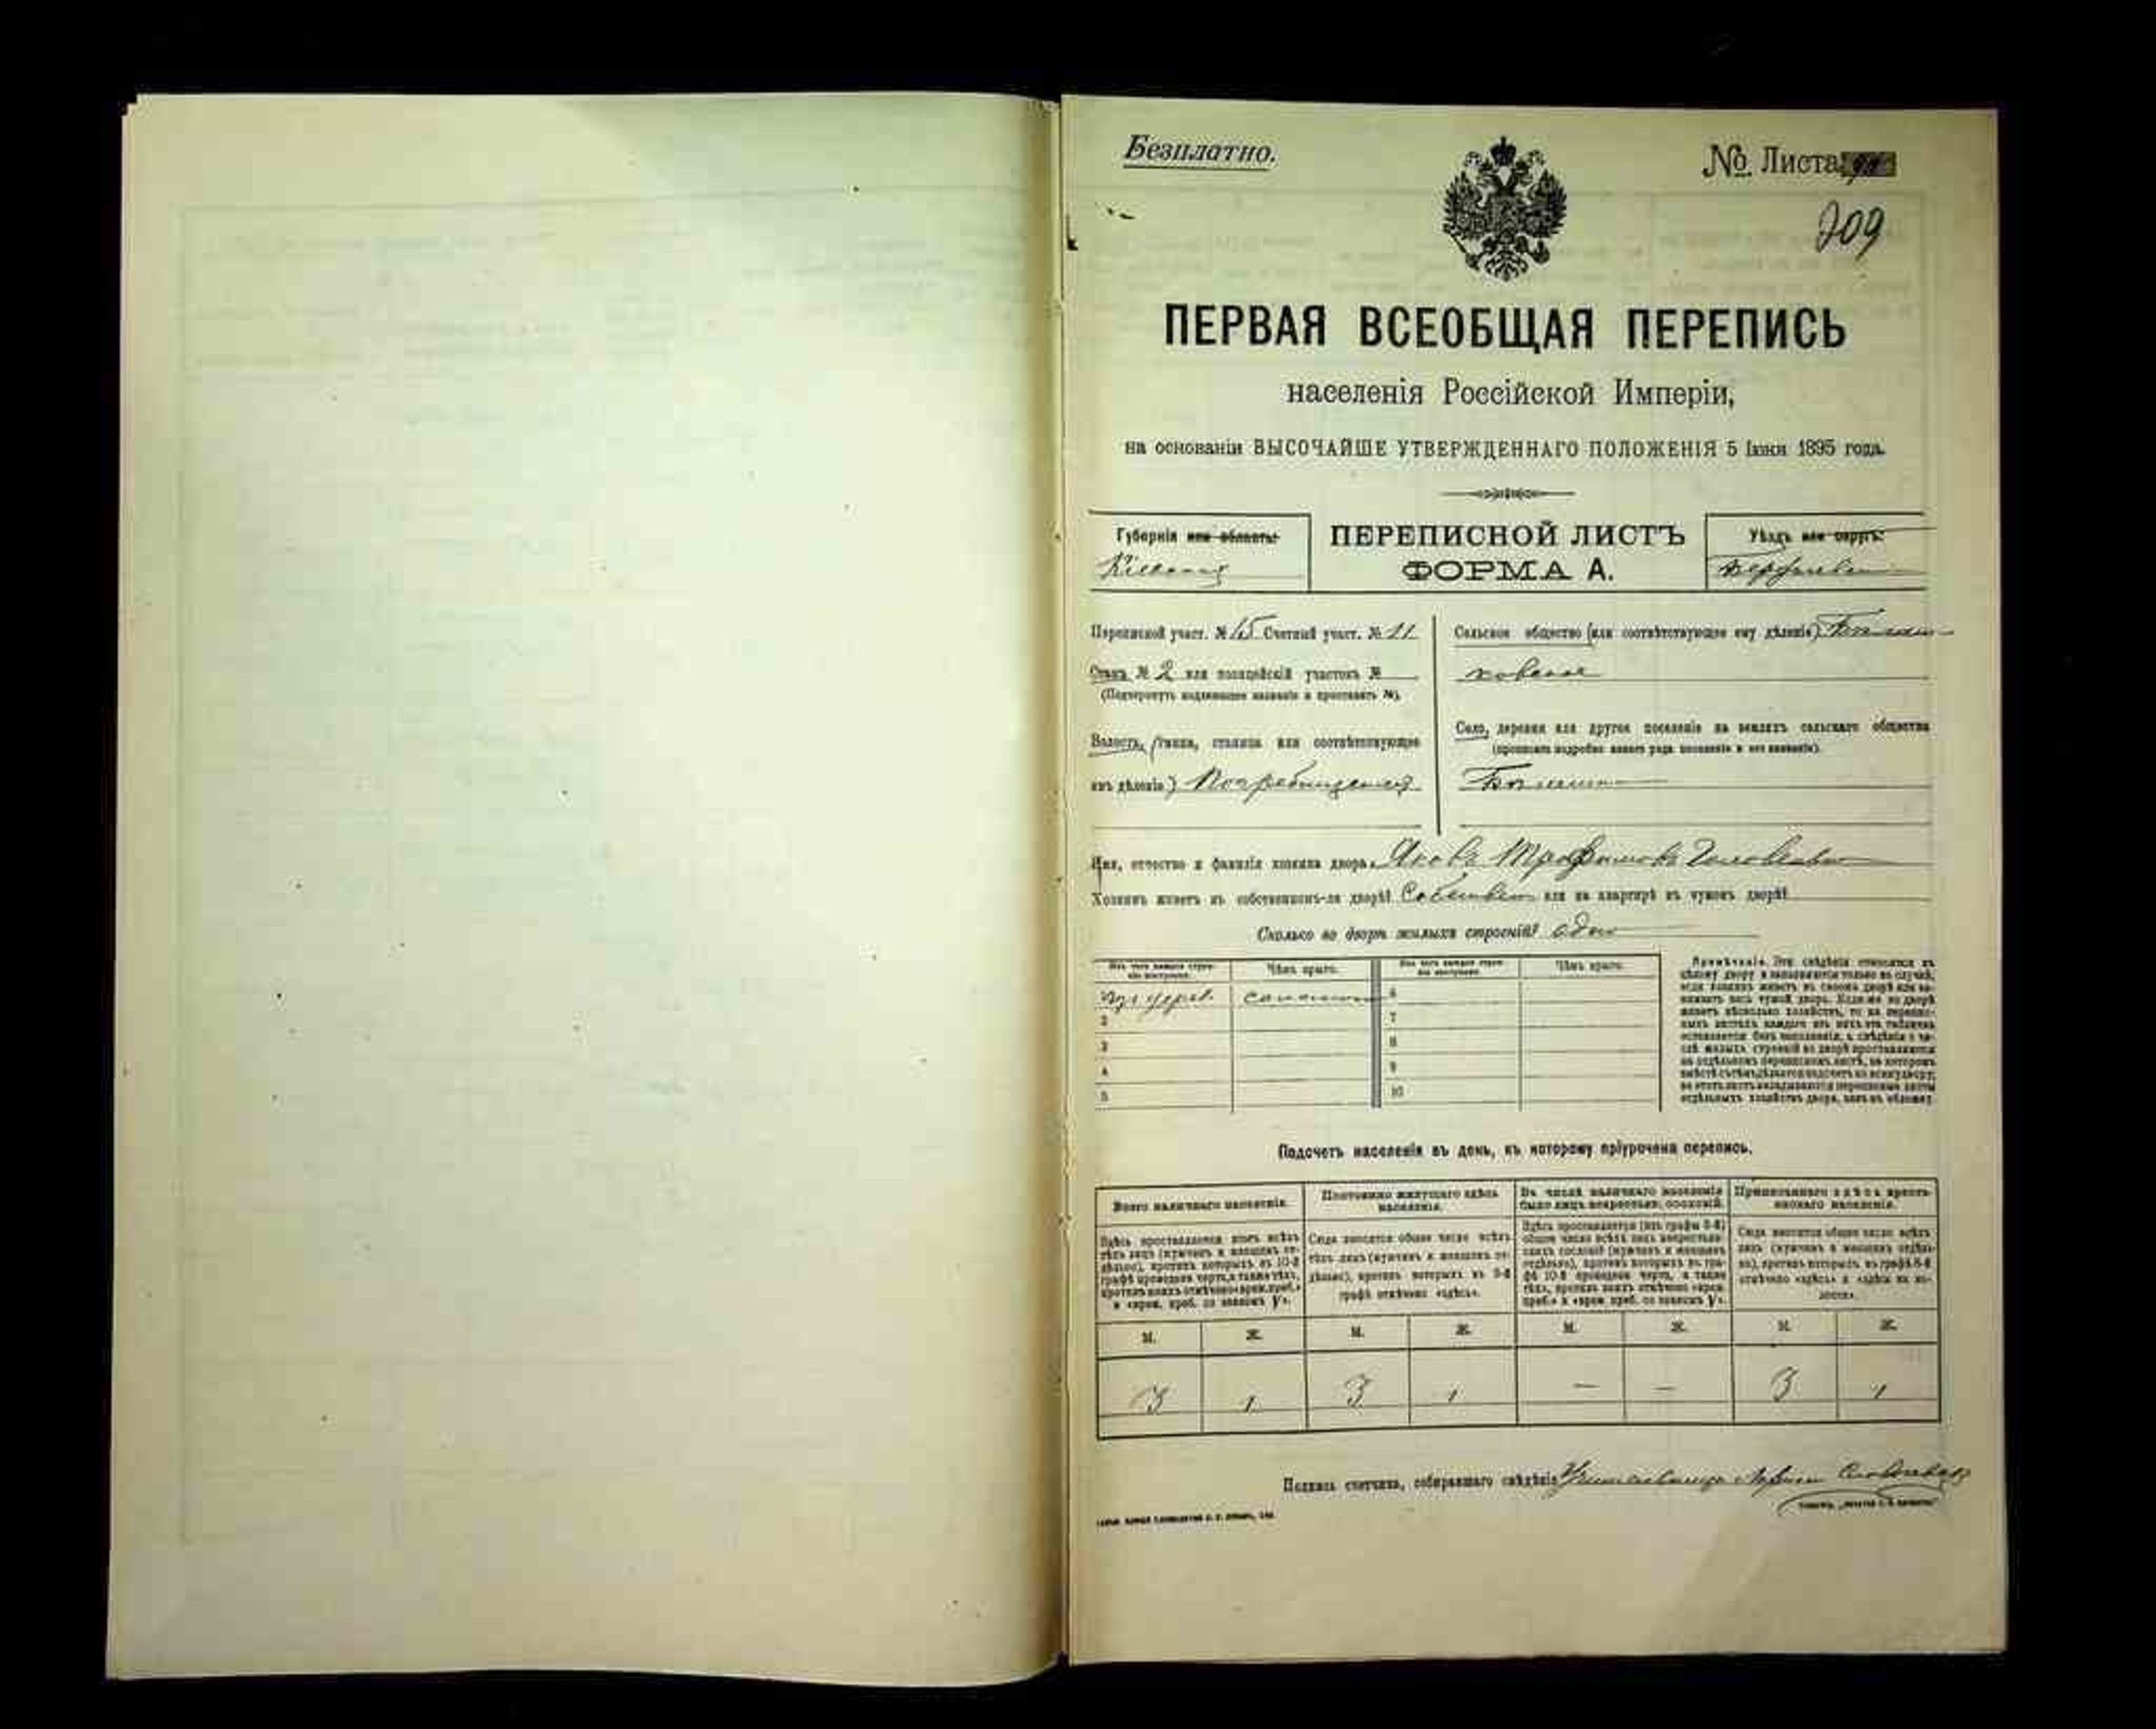 Безплатно.
№ Листа
209
ПЕРВАЯ ВСЕОБЩАЯ ПЕРЕПИСЬ
населенія Россійской Имперіи,
на основаніи ВЫСОЧАЙШЕ УТВЕРЖДЕННАГО ПОЛОЖЕНІЯ 5 Іюня 1895 года.
Губернія или область:
Кіевская
ПЕРЕПИСНОЙ ЛИСТЪ
ФОРМА А.
Уѣздъ или округъ:
Переписной участ. № 15 Счетный участ. № 11
Станъ № 2 или полицейскій участокъ №
(Подчеркнуть надлежащее названіе и проставить №).
Волость, (гмина, станица или соотвѣтствующее
имъ дѣленіе) Погребищенская
Сельское общество (или соотвѣтствующее ему дѣленіе)
Село, деревня или другое поселеніе на земляхъ сельскаго общества
(прописать подробно какого рода поселеніе и его названіе).
Имя, отчество и фамилія хозяина двора. Яковъ Трофимовъ
Хозяинъ живетъ въ собственномъ-ли дворѣ? или на квартирѣ въ чужомъ дворѣ?
Сколько во дворѣ жилыхъ строеній? одно
Изъ чего каждое строеніе построено.
Чѣмъ крыто.
Изъ чего каждое строеніе построено.
Чѣмъ крыто.
6
2
7
3
8
4
9
5
10
Примѣчаніе. Эти свѣдѣнія относятся къ
цѣлому двору и заполняются только въ случаѣ,
если хозяинъ живетъ въ своемъ дворѣ или за-
нимаетъ весь чужой дворъ. Если же во дворѣ
живетъ нѣсколько хозяйствъ, то на перепис-
ныхъ листахъ каждаго изъ нихъ эта табличка
оставляется безъ заполненія, а свѣдѣнія о чи-
слѣ жилыхъ строеній во дворѣ проставляются
на отдѣльномъ переписномъ листѣ, на которомъ
вмѣстѣ съ тѣмъ дѣлается подсчетъ по всему двору;
въ этотъ листъ вкладываются переписные листы
отдѣльныхъ хозяйствъ двора, какъ въ обложку.
Подсчетъ населенія въ день, къ которому пріурочена перепись.
Всего наличнаго населенія.
Постоянно живущаго здѣсь
населенія.
Въ числѣ наличнаго населенія
было лицъ некрестьян. сословій.
Приписаннаго здѣсь кресть-
янскаго населенія.
Здѣсь проставляется итогъ всѣхъ
тѣхъ лицъ (мужчинъ и женщинъ от-
дѣльно), противъ которыхъ въ 10-й
графѣ проведена черта, а также тѣхъ,
противъ коихъ отмѣчено «врем. преб.»
Сюда заносится общее число всѣхъ
тѣхъ лицъ (мужчинъ и женщинъ от-
дѣльно), противъ которыхъ въ 9-й
графѣ отмѣчено «здѣсь».
Здѣсь проставляется (изъ графы 3-й)
общее число всѣхъ лицъ некрестьян-
скихъ сословій (мужчинъ и женщинъ
отдѣльно), противъ которыхъ въ гра-
фѣ 10-й проведена черта, а также
Сюда заносится общее число всѣхъ
лицъ (мужчинъ и женщинъ отдѣль-
но), противъ которыхъ въ графѣ 8-й
М. Ж. М. Ж. М. Ж. М. Ж.
3 1 3 1 — — 3 1
Подпись счетчика, собиравшаго свѣдѣнія